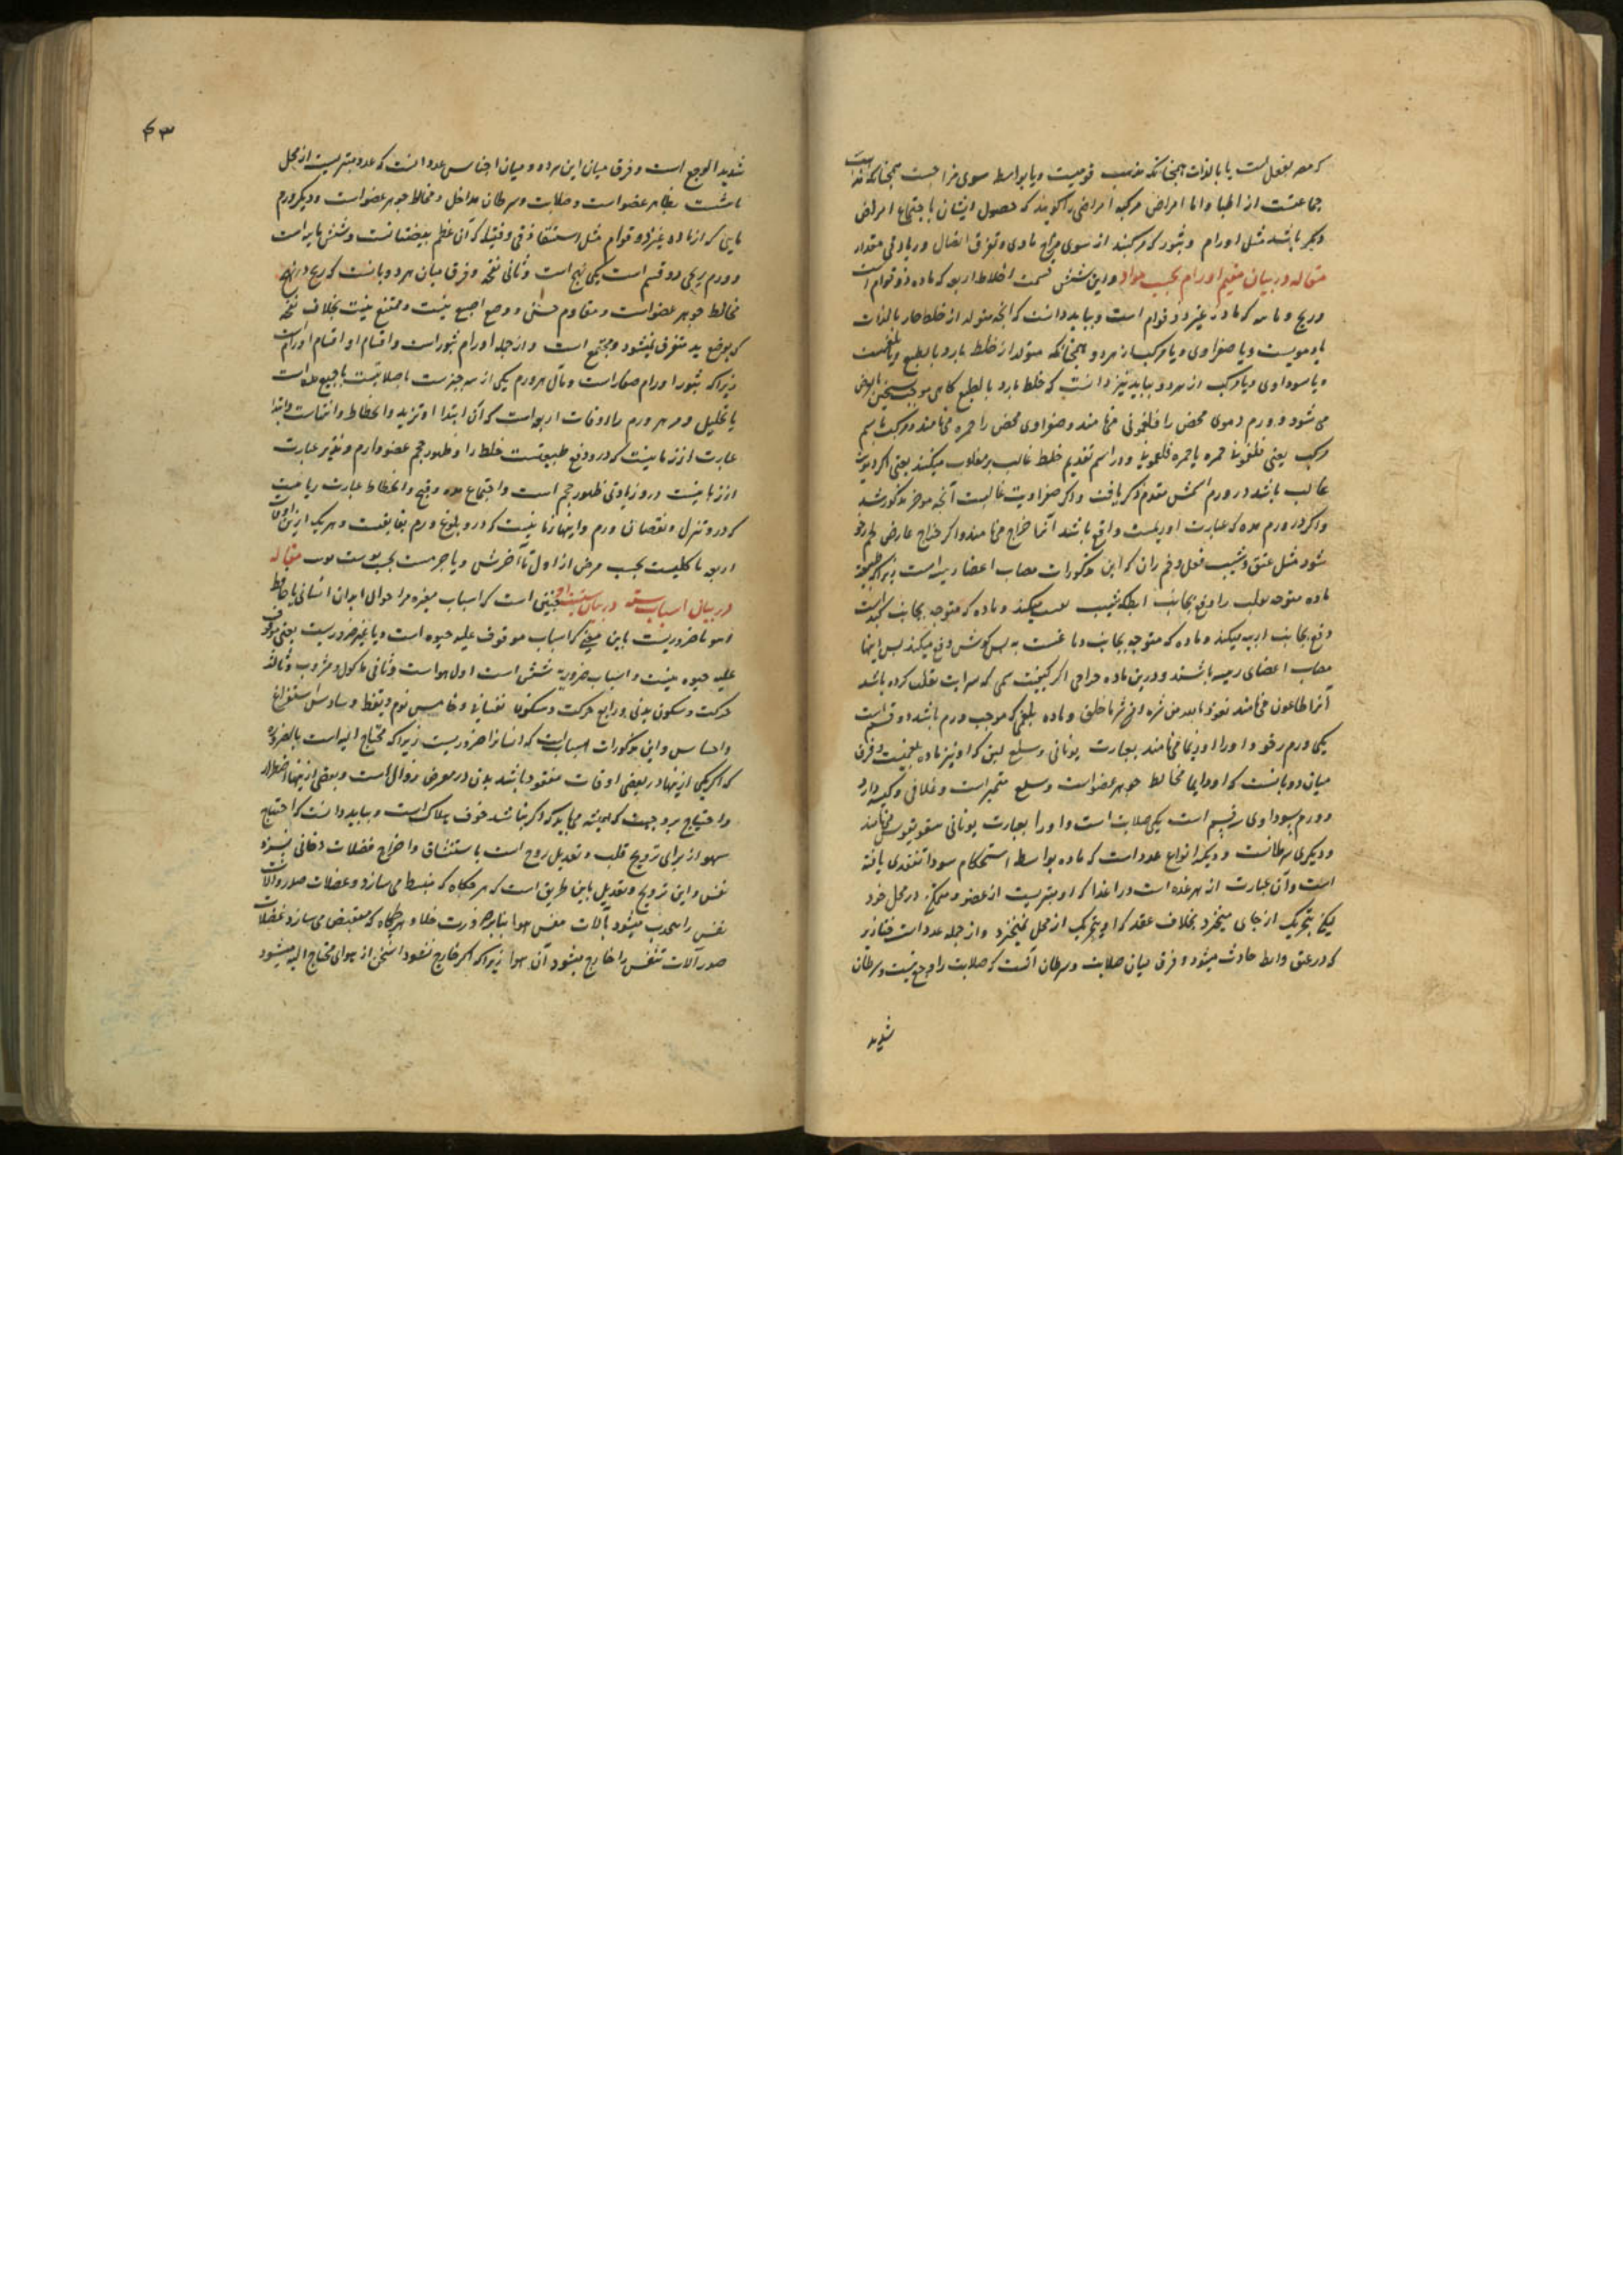 که مضر بفعل است یا بالذات همچنانکه مذهب قومیست و یا بواسطه سوی مزاجست همچنانکه مذهب
جماعتست از اطبا و اما امراض مرکبه امراضی را گویند که حصول ایشان باجتماع امراض
دیگر باشد مثل اورام و بثور که مرکبند از سوی مزاج مادی و تفرق اتصال و زیادتی مقدار
مقاله در بیان تقسیم اورام بحسب مواد و این شش قسمت اخلاط اربعه که ماده ذو قوام است
و ریح و ماییه که ماده غیر ذو قوام است و بباید دانست که آنچه متولد از خلط حار بالذات
یا دمویست و یا صفراوی و یا مرکب از هر دو همچنانکه متولد از خلط بارد بالطبع یا بلغمیست
و یا سوداوی و یا مرکب از هر دو و بباید نیز دانست که خلط بارد بالطبع گاهی موجب تسخین بالعرض
می شود و ورم دموی محض را فلغمونی می نامند و صفراوی محض را حمره می نامند و مرکب باسم
مرکب یعنی فلغمونیا حمره یا حمره فلغمونیا و در اسم تقدیم خلط غالب بر مغلوب میکنند یعنی اگر دمویت
غالب باشد در ورم اسمش مقدم ذکر یافت و اگر صفراویت غالبست آنچه موخر مذکور شد
و اگر در ورم مده که عبارت از ریمست واقع باشد آنرا خراج می نامند و اگر خراج عارض لحم رخو
شود مثل عنق و شیب بغل و بن ران که این مذکورات مصاب اعضا رییسه است زیرا که طبیعة
ماده متوجه بقلب را دفع بجانب ابط که شیب بغلست میکند و ماده که متوجه بجانب کبد است
دفع بجانب اربیه میکند و ماده که متوجه بجانب دماغست به پس گوش دفع میکند پس اینها
مصاب اعضای رییسه باشند و درین ماده خراجی اگر کیفیت سمی که سرایت بقلب کرده باشد
آنرا طاعون می نامند نعوذ بالله من شره و ماده بلغمی که موجب ورم باشد دو قسم است
یکی ورم رخو و او را اوذیما می نامند بعبارت یونانی و سلع لین که او نیز ماده بلغمیست و فرق
میان دو بآنست که اودیما مخالط جوهر عضو است و سلع متمیز است و غلافی و کیسه دارد
و ورم سوداوی سه قسم است یکی صلابت است و او را بعبارت یونانی سقیروس می نامند
و دیگری سرطانست و دیگر انواع غدد است که ماده بواسطه استحکام سودا تعقدی یافته
است و آن عبارت از هر غده است و را غدا که او متبریست از عضو و متمکن در محل خود
لیکن بتحریک از جای میخیزد بخلاف عقد که او بتحریک از محل نمیخیزد و از جمله غدد است خنازیر
که در عنق و ابط حادث میشود و فرق میان صلابت و سرطان آنست که صلابت را وجع نیست و سرطان
شدید
۴۳
شدید الوجع است و فرق میان این هر دو و میان اجناس غدد آنست که غدد متبریست از محل
و صلابت و سرطان مداخل و مخالط جوهر عضو است و دیگر ورم
مایی که از ماده غیر ذو قوام مثل استسقا زقی و قیله که آن عظم بیضتانست
و ورم ریحی دو قسم است یکی تهیج است و ثانی نفخه و فرق میان هر دو بآنست که ریح در تهیج
مخالط جوهر عضو است و مقاوم حس و وضع اصبع نیست و ممتنع نیست بخلاف نفخه
که بوضع ید متفرق نمیشود و مجتمع است و از جمله اورام بثور است و اقسام او اقسام اورام است
زیرا که بثور اورام صغار است و مآل هر ورم یکی از سه چیز است یا صلابتست یا جمع مده است
یا تحلیل و مر هر ورم را اوقات اربعه است که آن ابتدا و تزید و انحطاط و انتهاست و ابتدا
عبارت از زمانیست که در و دفع طبیعتست خلط را و ظهور حجم عضو وارم و تزید عبارت
از زمانیست در و زیادتی ظهور حجم است و اجتماع مده و قیح و انحطاط عبارت زمانیست
که در و تنزل و نقصان ورم و انتها زمانیست که در و بلوغ ورم بغایتست و هر یک ازین اوقات
اربعه یا کلیست بحسب مرض از اول تا آخرش و یا جزییست بحسب نوبت مقاله
در بیان اسباب سته چنین است که اسباب مغیره مر احوال ابدان انسانی یا حافظ
او یا ضروریست باین معنی که اسباب موقوف علیه حیوه است و یا غیر ضروریست یعنی موقوف
علیه حیوه نیست و اسباب ضروریه شش است اول هواست و ثانی ماکول و مشروب و ثالث
حرکت و سکون بدنی و رابع حرکت و سکون نفسانی و خامس نوم و یقظه و سادس استفراغ
و احتباس و این مذکورات اسبابست که انسانرا ضروریست زیرا که محتاج الیه است بالضروره
که اگر یکی ازینها در بعضی اوقات مفقود باشد بدن در معرض زوال است و بعضی ازینها اضطرار
و احتیاج بر وجهیست که همیشه می باید که اگر نباشد خوف هلاک است و بباید دانست که احتیاج
بهوا از برای ترویح قلب و تعدیل روح است باستنشاق و اخراج فضلات دخانی
نفس و این ترویح و تعدیل باین طریق است که هرگاه که منبسط می سازد و عضلات صدر و آلات
نفس را منجذب میشود بآلات نفس هوا بنابر ضرورت خلا و هرگاه که منقبض می سازد عضلات
صدر آلات تنفس را خارج میشود آن هوا زیرا که اگر خارج نشود اسخن از هوای محتاج الیه میشود